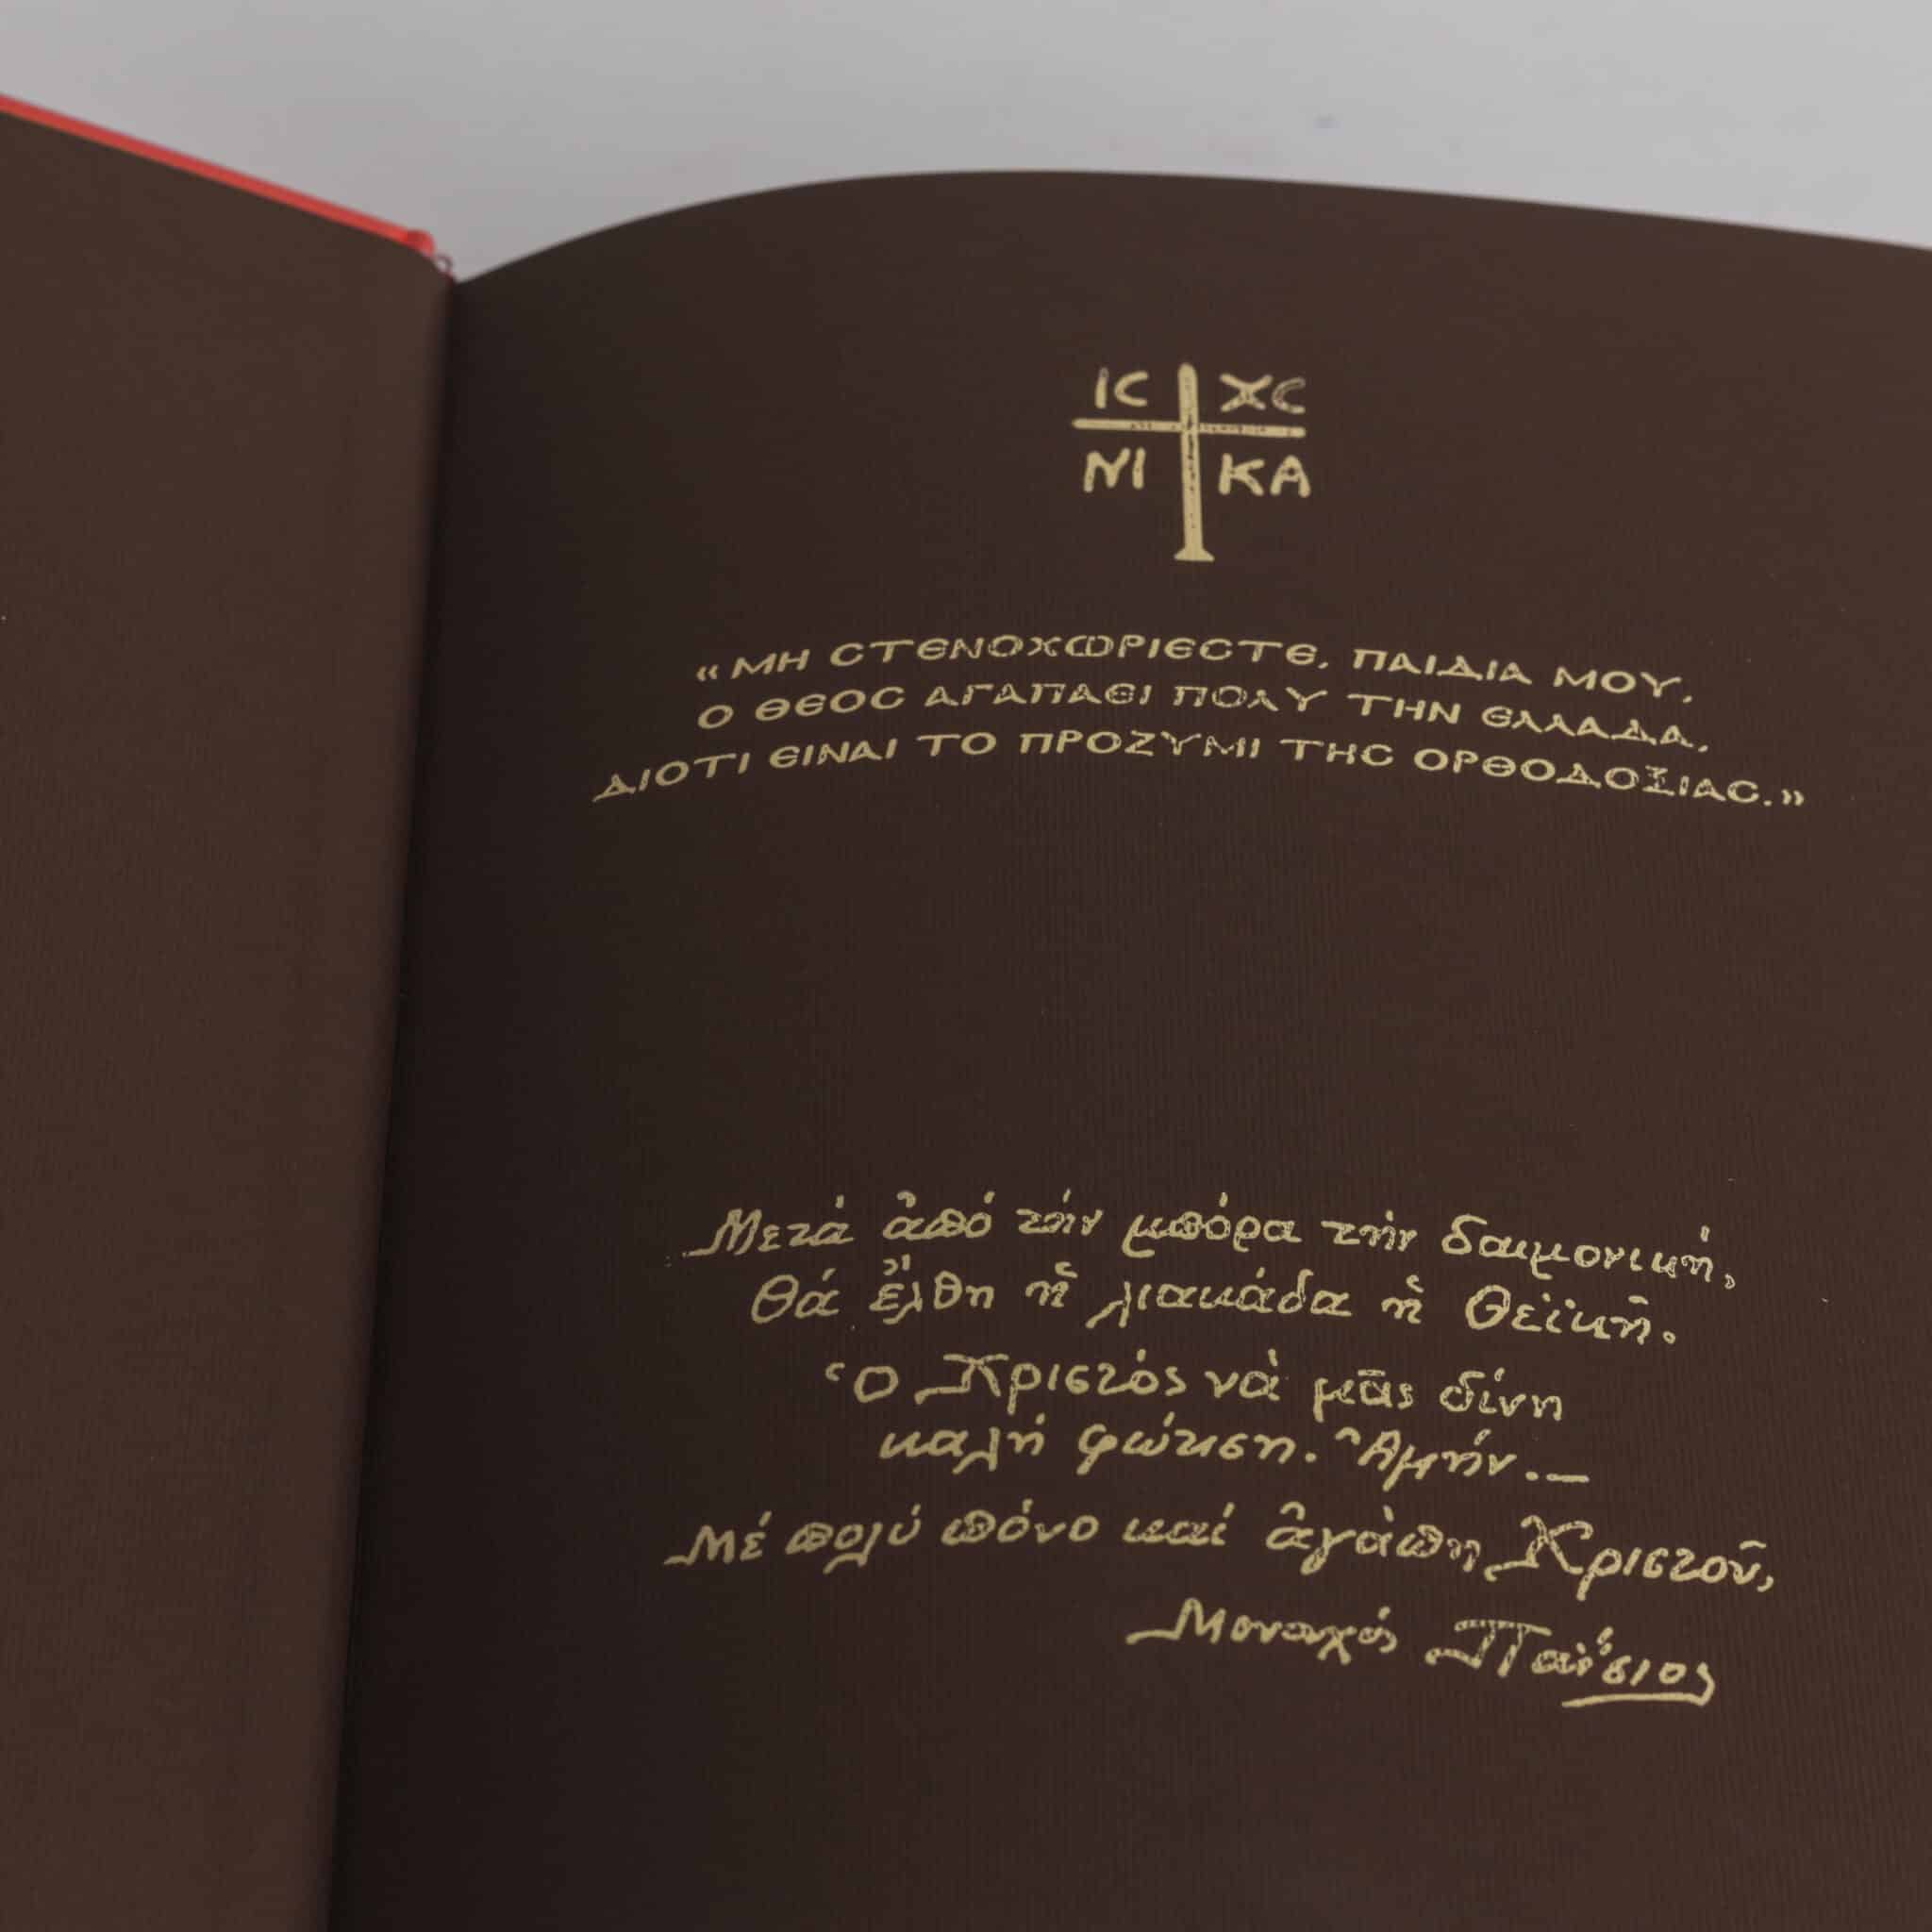 ΙC ΧC
ΝΙ ΚΑ
«ΜΗ CΤΕΝΟΧΩΡΙΕCΤΕ, ΠΑΙΔΙΑ ΜΟΥ,
Ο ΘΕΟC ΑΓΑΠΑΕΙ ΠΟΛΥ ΤΗΝ ΕΛΛΑΔΑ,
ΔΙΟΤΙ ΕΙΝΑΙ ΤΟ ΠΡΟΖΥΜΙ ΤΗC ΟΡΘΟΔΟΞΙΑC.»
Μετά ἀπό τήν μπόρα τήν δαιμονική,
Θά ἔλθη ἡ λιακάδα ἡ Θεϊκή.
Ὁ Χριστός νὰ μᾶς δίνη
καλή φώτιση. Ἀμήν.—
Μέ πολύ πόνο καί ἀγάπη Χριστοῦ,
Μοναχός Παΐσιος